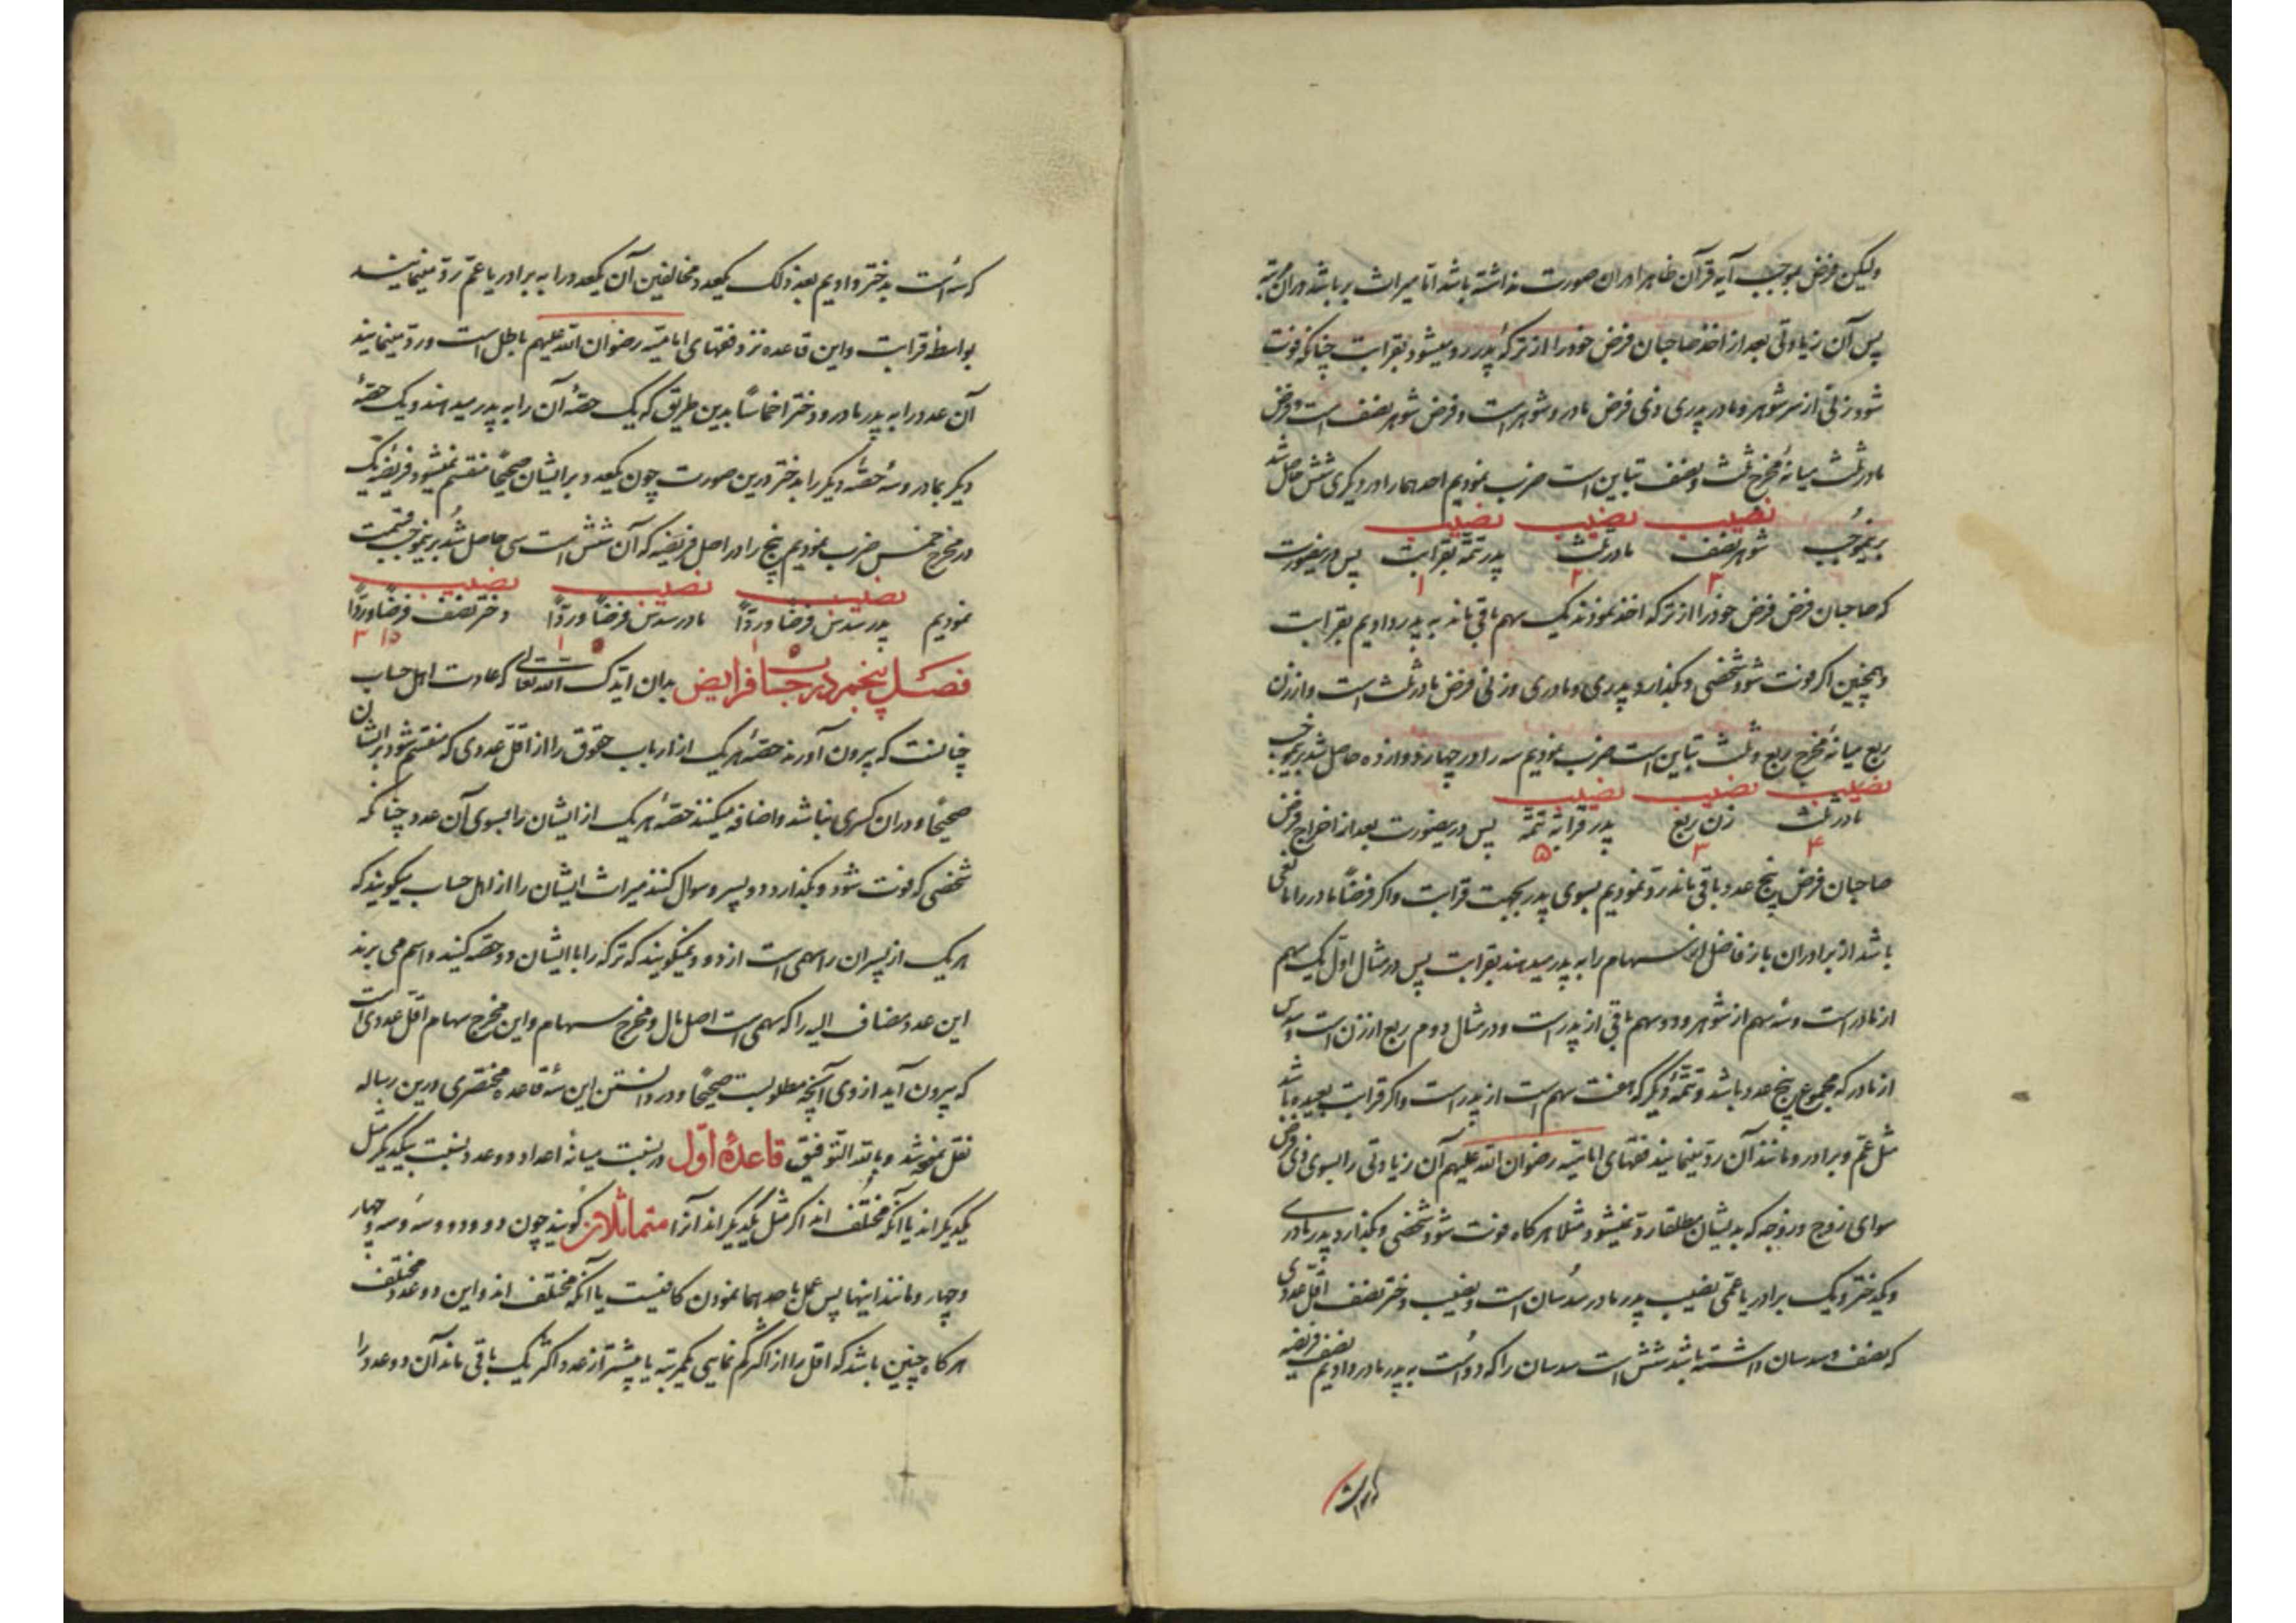 ولیکن فرض بموجب آیه قرآن ظاهرا در ان صورت نداشته باشد اما میراث بر باشد در ان مرتبه
پس آن زیادتی بعد از اخذ صاحبان فرض خود را از ترکه پدر رد میشود بقرابت چنانکه فوت
شود زنی از سر شوهر و مادر و پدری ذی فرض مادر و شوهر است و فرض شوهر نصف است و فرض
مادر ثلث میانهٔ مخرج ثلث و نصف تباین است ضرب نمودیم احدهما را در دیگری شش حاصل شد
نصیب نصیب نصیب
برینموجب شوهر نصف مادر ثلث پدر تتمه بقرابت پس درینصورت
۳ ۲ ۱
که صاحبان فرض فرض خود را از ترکه اخذ نمودند یک سهم باقی ماند به پدر دادیم بقرابت
و همچنین اکر فوت شود شخصی و بکذارد پدری و مادری و زنی فرض مادر ثلث است و از زن
ربع میانهٔ مخرج ربع و ثلث تباین است ضرب نمودیم سه را در چهار دوازده حاصل شد برینموجب
نصیب نصیب نصیب
مادر ثلث زن ربع پدر قرابة تتمه پس درینصورت بعد از اخراج فرض
۴ ۳ ۵
صاحبان فرض پنج عدد باقی ماند رد نمودیم بسوی پدر بجهت قرابت و اکر فرضاً مادر را مانعی
باشد از برادران باز فاضل این سهام را به پدر میدهند بقرابت پس در مثال اول یک سهم
از مادر است و سه سهم از شوهر و دو سهم باقی از پدر است و در مثال دوم ربع از زن است و سدس
از مادر که مجموع پنج عدد باشد و تتمهٔ دیگر که هفت سهم است از پدر است و اکر قرابت بعیده باشد
مثل عم و برادر و مانند آن رد مینمایند فقهای امامیه رضوان الله علیهم آن زیادتی را بسوی ذی فرض
سوای زوج و زوجه که بدیشان مطلقا رد نمیشود مثلا هر کاه فوت شود شخصی و بکذارد پدر مادری
و یکدختر و یک برادر یا عمی نصیب پدر مادر سدسان است و نصیب دختر نصف اقل عددی
که نصف و سدسان داشته باشد شش است سدسان را که دو است به پدر مادر دادیم نصف فریضه
که سه است بدختر دادیم بعد ذلک یکعدد مخالفین آن یکعدد را به برادر یا عم رد مینمایند
بواسطه قرابت و این قاعده نزد فقهای امامیه رضوان الله علیهم باطل است و رد مینمایند
آن عدد را به پدر مادر و دختر اخماسا بدین طریق که یک حصهٔ آن را به پدر میدهند و یک حصهٔ
دیکر بمادر و سه حصهٔ دیکر را بدختر درین صورت چون یکعدد بر ایشان صحیحاً منقسم نمیشود فریضه یک
در مخرج خمس ضرب نمودیم پنج را در اصل فریضه که آن شش است سی حاصل شد برینموجب قسمت
نصیب نصیب نصیب
نمودیم پدر سدس فرضا و رداً مادر سدس فرضاً و رداً دختر نصف فرضاً و رداً
۵ ۱ ۵ ۱ ۱۵ ۳
فصل پنجم در حساب فرایض بدان ایدک الله تعالی که عادت اهل حساب
چنانست که بیرون آورند حصهٔ هر یک از ارباب حقوق را از اقل عددی که منقسم شود بر ایشان
صحیحاً و در ان کسری نباشد و اضافه میکنند حصهٔ هر یک از ایشان را بسوی آن عدد چنانکه
شخصی که فوت شود و بکذارد دو پسر و سوال کنند میراث ایشان را از اهل حساب میکویند که
هر یک از پسران را سهمی است از دو و نمیکویند که ترکه را با ایشان دو حصه کنید و اسم می برند
این عدد مضاف الیه را که سهمی است اصل مال و مخرج سهام و این مخرج سهام اقل عددی است
که بیرون آید از وی آنچه مطلوبست صحیحاً و در دانستن این سه قاعده مختصری درین رساله
نقل نموده شد و بالله التوفیق قاعدهٔ اول در نسبت میانهٔ اعداد دو عدد نسبت بیکدیکر مثل
یکدیکراند یا آنکه مختلف اند اکر مثل یکدیکر اند آنرا متماثلان کویند چون دو و دو و سه و سه و چهار
و چهار و مانند اینها پس عمل باحدهما نمودن کافیست یا آنکه مختلف اند و این دو عدد مختلف
هر کاه چنین باشد که اقل را از اکثر کم نمایی یکمرتبه یا بیشتر از عدد اکثر یک باقی ماند آن دو عدد را